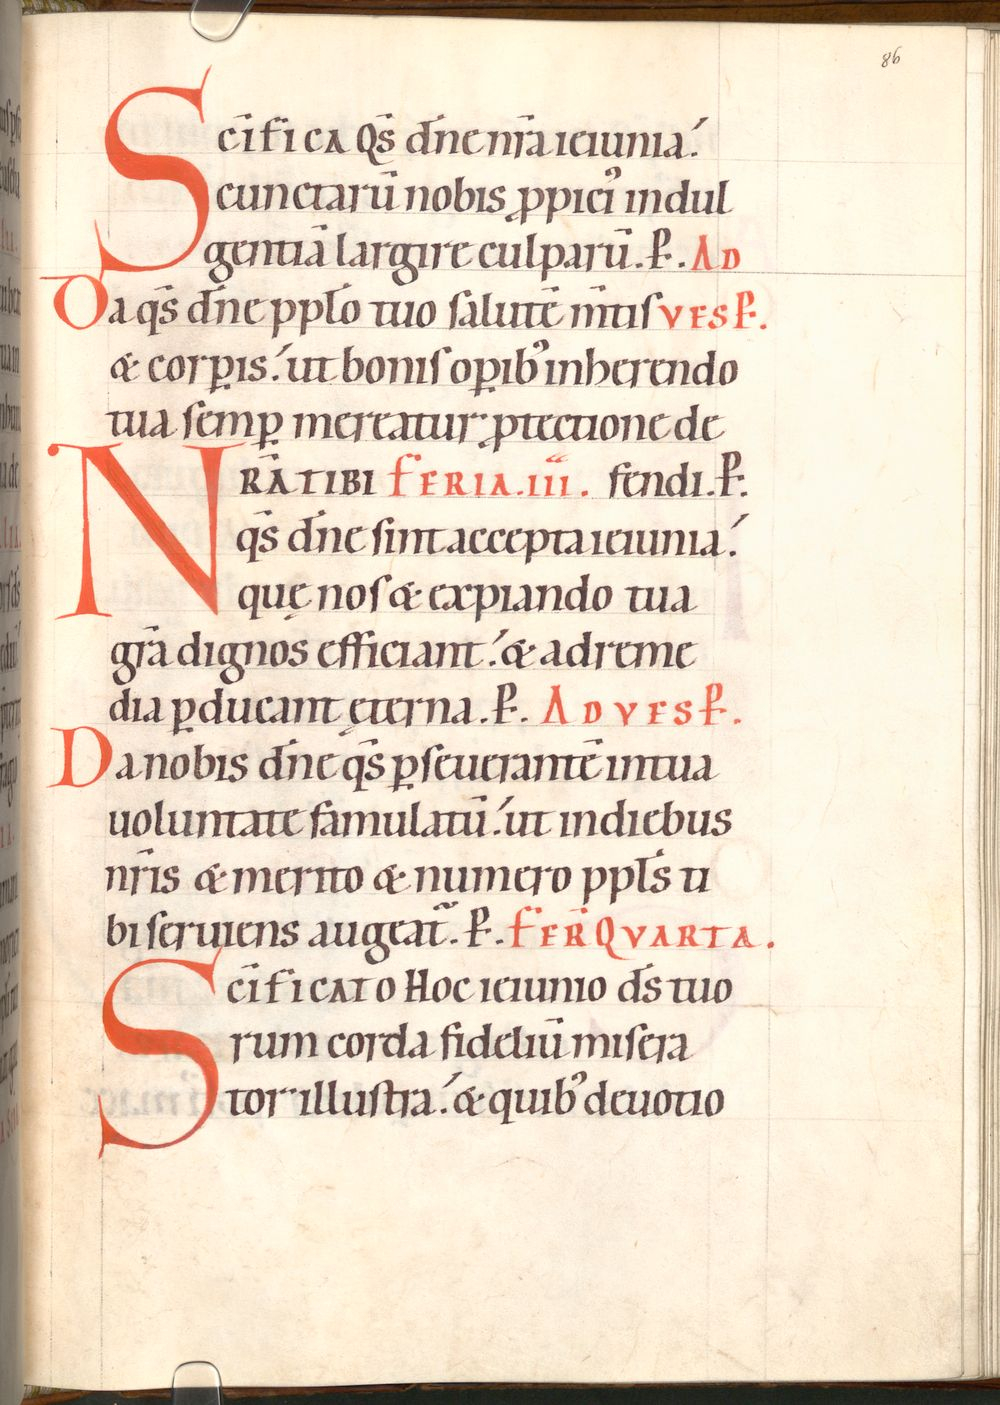 86
Sc̄ifica qs̄ dn̄e nr̄a ieiunia.
& cunctarū nobis ꝓpiciꝰ indul
gentiā largire culparū. P̄. AD
Da qs̄ dn̄e ppło tuo salutē m̄tis VESP̄.
& corꝑis. ut bonis oꝑibꝰ inherendo
tua semꝑ mereatur ꝓtectione de
NRĀ TIBI FERIA. III. fendi. P̄.
qs̄ dn̄e sint accepta ieiunia.
quę nos & expiando tua
gr̄a dignos efficiant. & ad reme
dia ꝑducant ęterna. P̄. AD VESP̄.
Da nobis dn̄e qs̄ ꝑseuerantē in tua
uoluntate famulatū. ut in diebus
nr̄is & merito & numero ppłs ti
bi seruiens augeat᷑. P̄. FER̄ QVARTA.
Sc̄ificato hoc ieiunio ds̄ tuo
rum corda fideliū misera
tor illustra. & quibꝰ deuotio